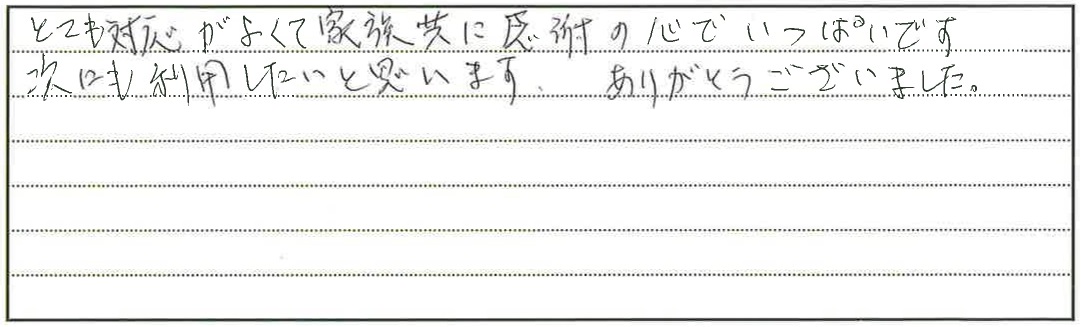 とても対応がよくて家族共に感謝の心でいっぱいです
次にも利用したいと思います、 ありがとうございました。